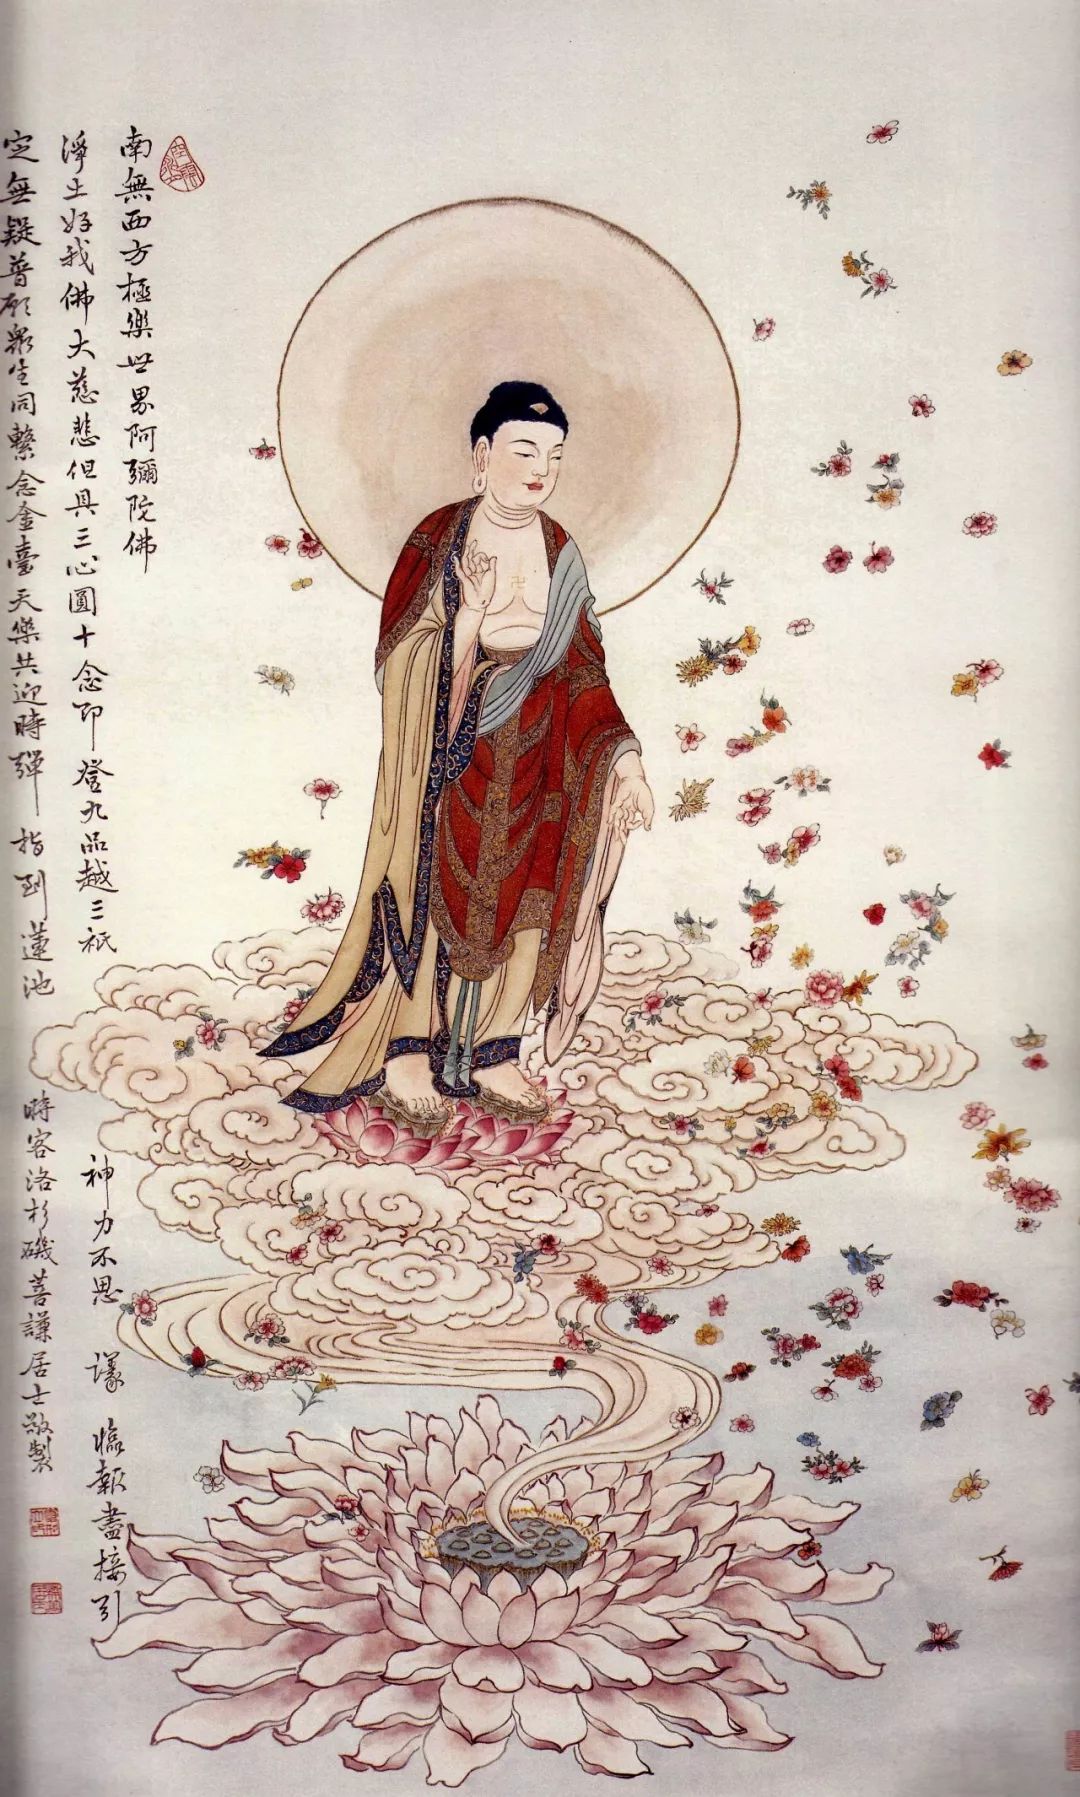 南無西方極樂世界阿彌陀佛
淨土好我佛大慈悲但具三心圓十念即登九品越三祇 神力不思議臨報盡接引
定無疑普願眾生同繫念金臺天樂共迎時彈指到蓮池 時客洛杉磯菩謹居士敬製